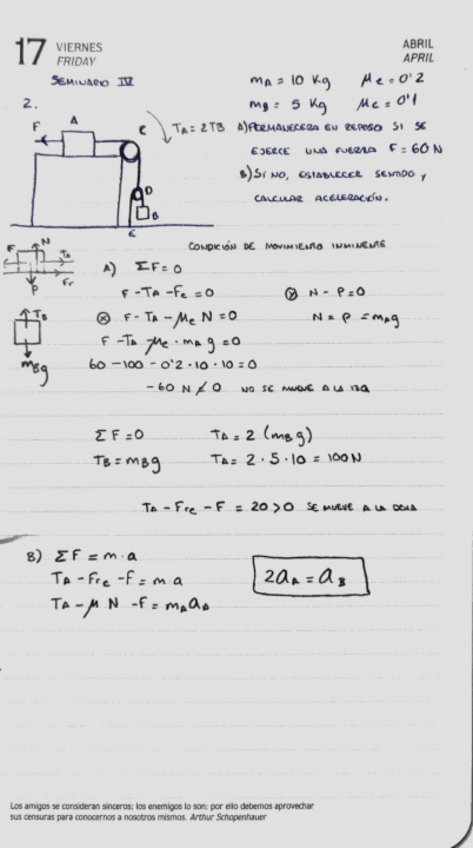 17 VIERNES
FRIDAY
ABRIL
APRIL
SEMINARIO IV
mA = 10 Kg   μe = 0'2
mB = 5 Kg   μc = 0'1
2.
F A C TA = 2TB
D
B
E
A) PERMANECERA EN REPOSO SI SE
EJERCE UNA FUERZA F = 60 N
B) SI NO, ESTABLECER SENTIDO Y
CALCULAR ACELERACIÓN.
CONDICIÓN DE MOVIMIENTO INMINENTE
F N TA
Fr
P
TB
mBg
A) ΣF = 0
F - TA - Fe = 0   Ⓨ N - P = 0
Ⓧ F - TA - μe N = 0   N = P = mAg
F - TA - μe · mA g = 0
60 - 100 - 0'2 · 10 · 10 = 0
-60 N ≠ 0 NO SE MUEVE A LA IZQ
ΣF = 0   TA = 2 (mB g)
TB = mBg   TA = 2 · 5 · 10 = 100 N
TA - Fre - F = 20 > 0 SE MUEVE A LA DCHA
B) ΣF = m · a
TA - Fre - F = m a
2aA = aB
TA - μ N - F = mA aA
Los amigos se consideran sinceros; los enemigos lo son: por ello debemos aprovechar
sus censuras para conocernos a nosotros mismos. Arthur Schopenhauer